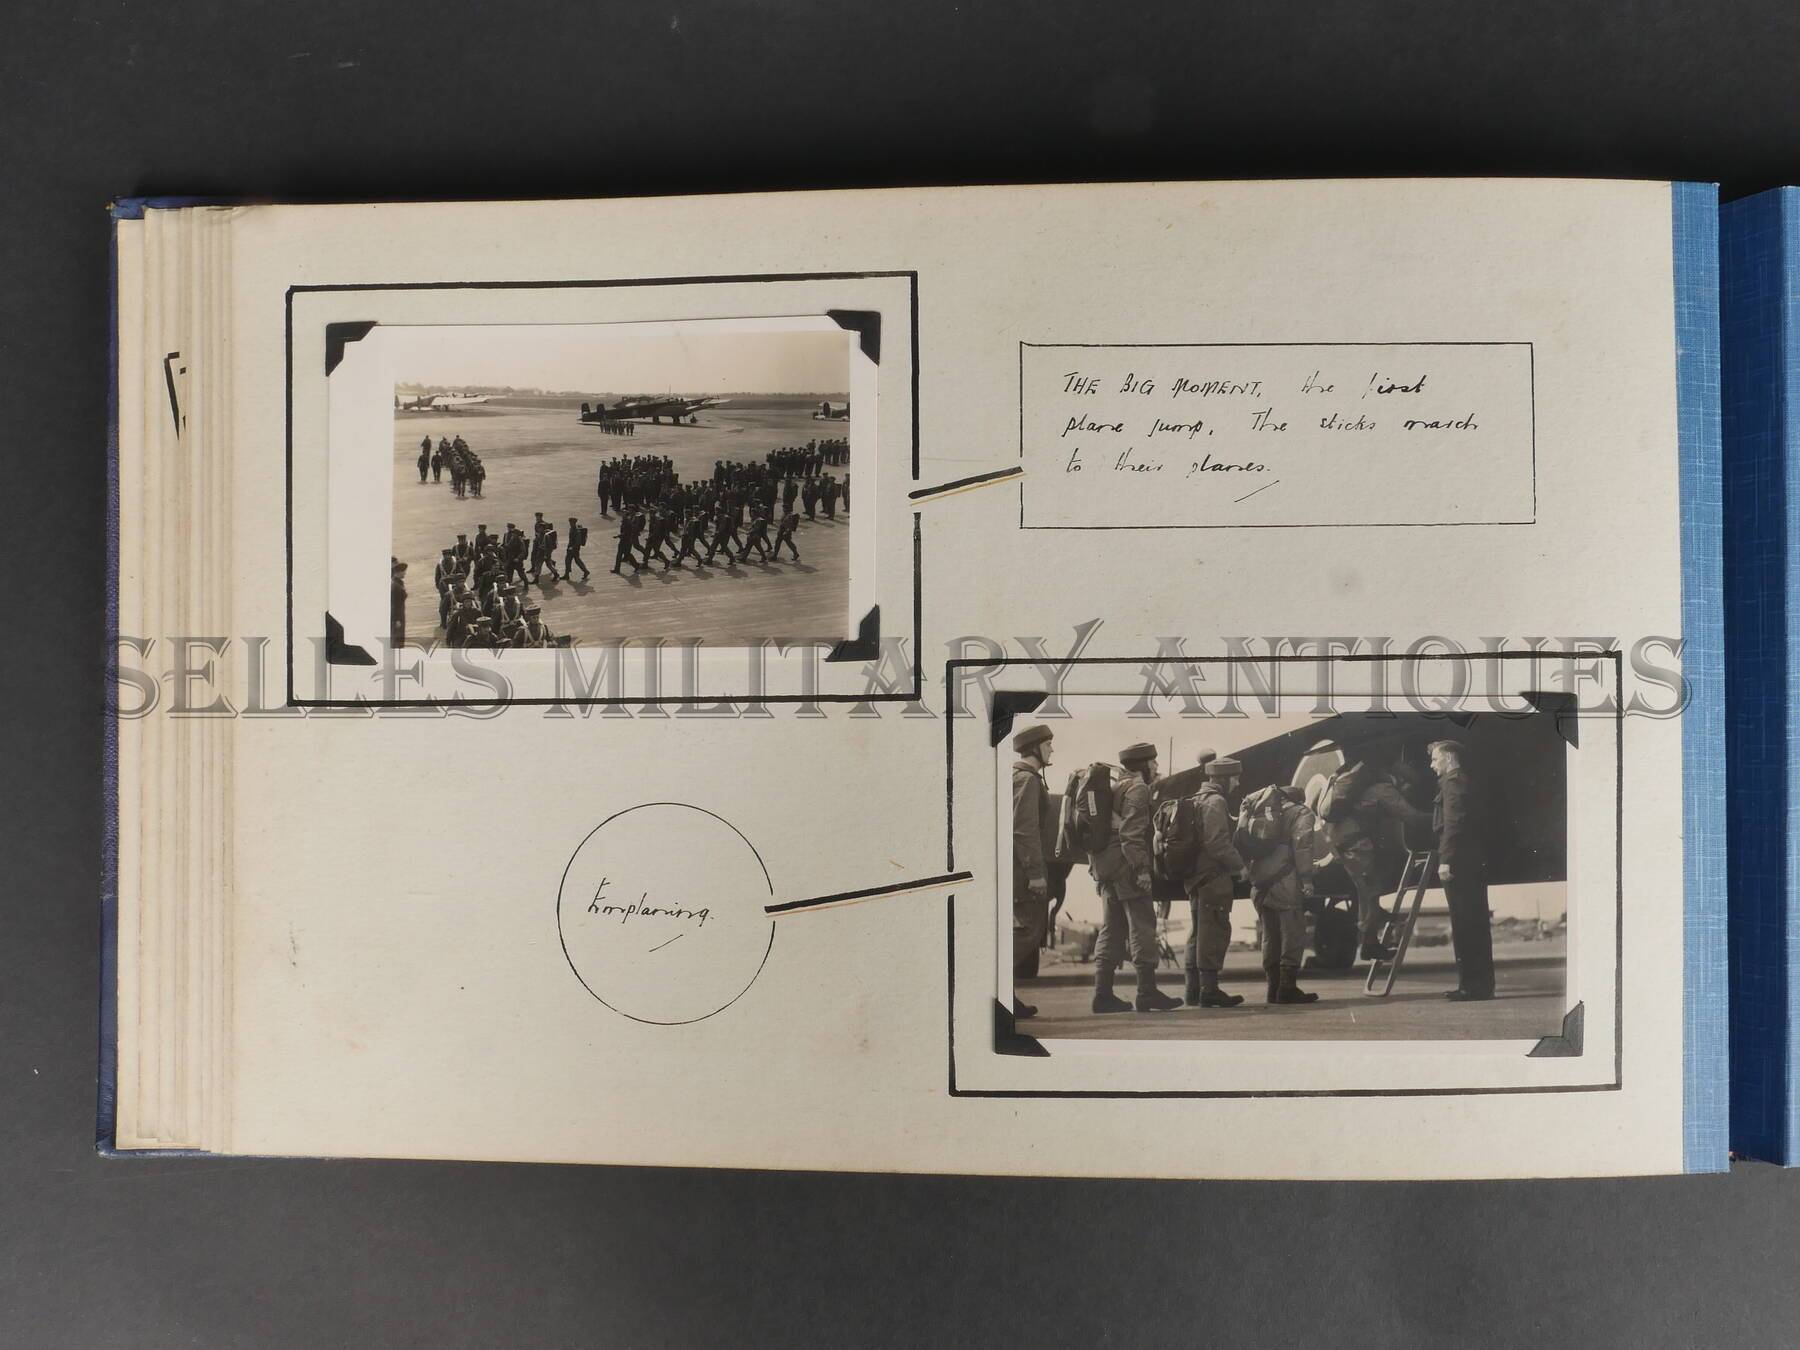 THE BIG MOMENT, the first
plane jump. The sticks march
to their planes.
SELLES MILITARY ANTIQUES
Emplaning.